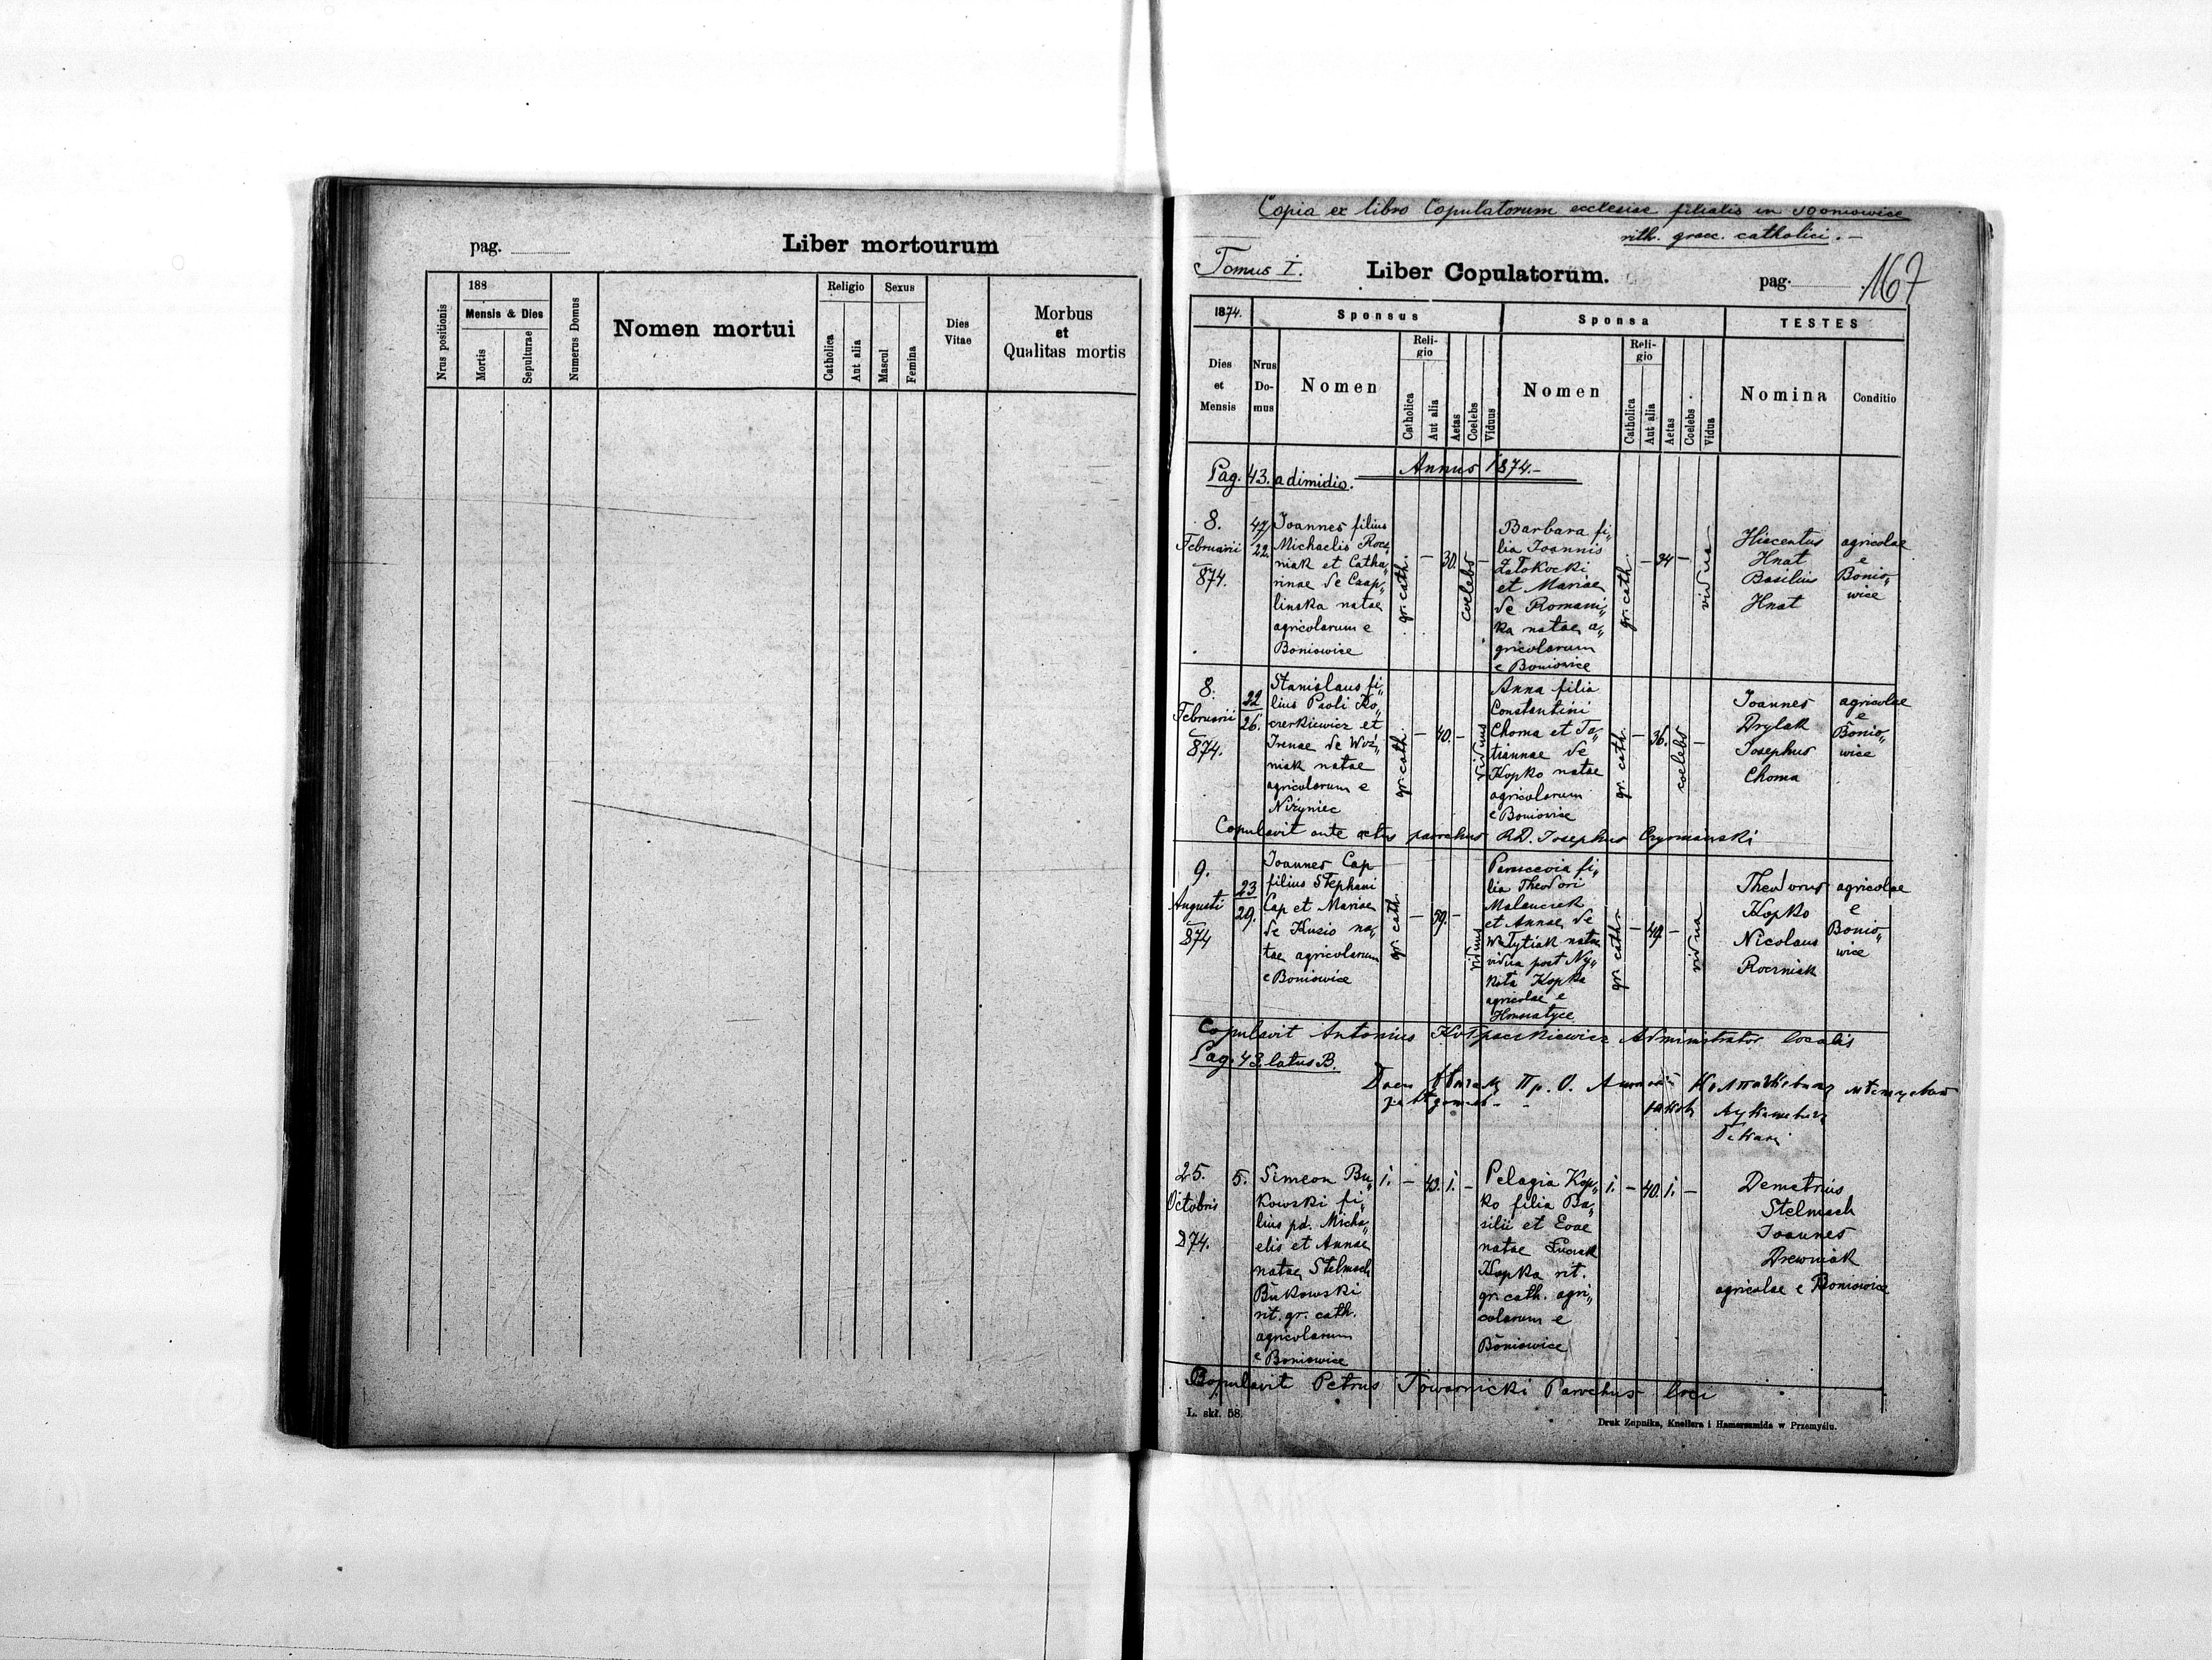 pag.
Liber mortourum
Nrus positionis
188
Mensis & Dies
Mortis
Sepulturae
Numerus Domus
Nomen mortui
Religio
Catholica
Aut alia
Sexus
Mascul
Femina
Dies
Vitae
Morbus
et
Qualitas mortis
Copia ex libro Copulatorum ecclesiae filialis in Boniowice
rith. graec. catholici. —
Tomus I.
Liber Copulatorum.
pag.
167
1874.
Sponsus
Sponsa
TESTES
Dies
et
Mensis
Nrus
Do-
mus
Nomen
Reli-
gio
Catholica
Aut alia
Aetas
Coelebs
Viduus
Nomen
Reli-
gio
Catholica
Aut alia
Aetas
Coelebs
Vidua
Nomina
Conditio
Annus 1874.—
Pag. 43. a dimidio.
8.
Februarii
874.
47/
22.
Joannes filius
Michaelis Rocz„
niak et Catha„
rinae de Czap„
linska natae
agricolarum e
Boniowice
gr. cath.
—
30.
coelebs
—
Barbara fi„
lia Joannis
Zatokocki
et Mariae
de Romani„
ka natae a„
gricolarum
e Boniowice
gr. cath.
—
34
—
vidua
Hiacentus
Hnat
Basilius
Hnat
agricolae
e
Bonio„
wice
8.
Februarii
874.
22
26.
Stanislaus fi„
lius Paoli Ko„
czerkiewicz et
Irenae de Woź„
niak natae
agricolarum e
Niżyniec
gr. cath.
—
40.
—
viduus
Anna filia
Constantini
Choma et Ta„
tiannae de
Kopko natae
agricolarum
e Boniowice
gr. cath.
—
36.
coelebs
—
Joannes
Drylak
Josephus
Choma
agricolae
e
Bonio„
wice
Copulavit ante actus parochus RD. Josephus
9.
Augusti
874
23
29.
Joannes Cap
filius Stephani
Cap et Mariae
de Kusio na„
tae agricolarum
e Boniowice
gr. cath.
—
59.
—
viduus
Parascevia fi„
lia Theodori
Malanczek
et Annae de
Watytiak natae
vidua post Ny„
kita Kopka
agricolae e
gr. cath.
—
49.
—
vidua
Theodorus
Kopko
Nicolaus
Roczniak
agricolae
e
Bonio„
wice
Copulavit Antonius Kołpaczkiewicz Administrator localis
Pag. 43. latus B.
25.
Octobris
874.
5.
Simeon Bu„
kowski fi„
lius pd. Micha„
elis et Annae
natae Stelmach
Bukowski
rit. gr. cath.
agricolarum
e Boniowice
i.
—
43.
i.
—
Pelagia Kop„
ko filia Ba„
silii et Evae
natae Łuczak
Kopka rit.
gr. cath. agri„
colarum e
Boniowice
i.
—
40.
i.
—
Demetrius
Stelmach
Joannes
Drewniak
agricolae e Boniowice
Copulavit Petrus Towarnicki Parochus loci
L. skł. 58.
Druk Żupnika, Knollera i Hamerszmida w Przemyślu.